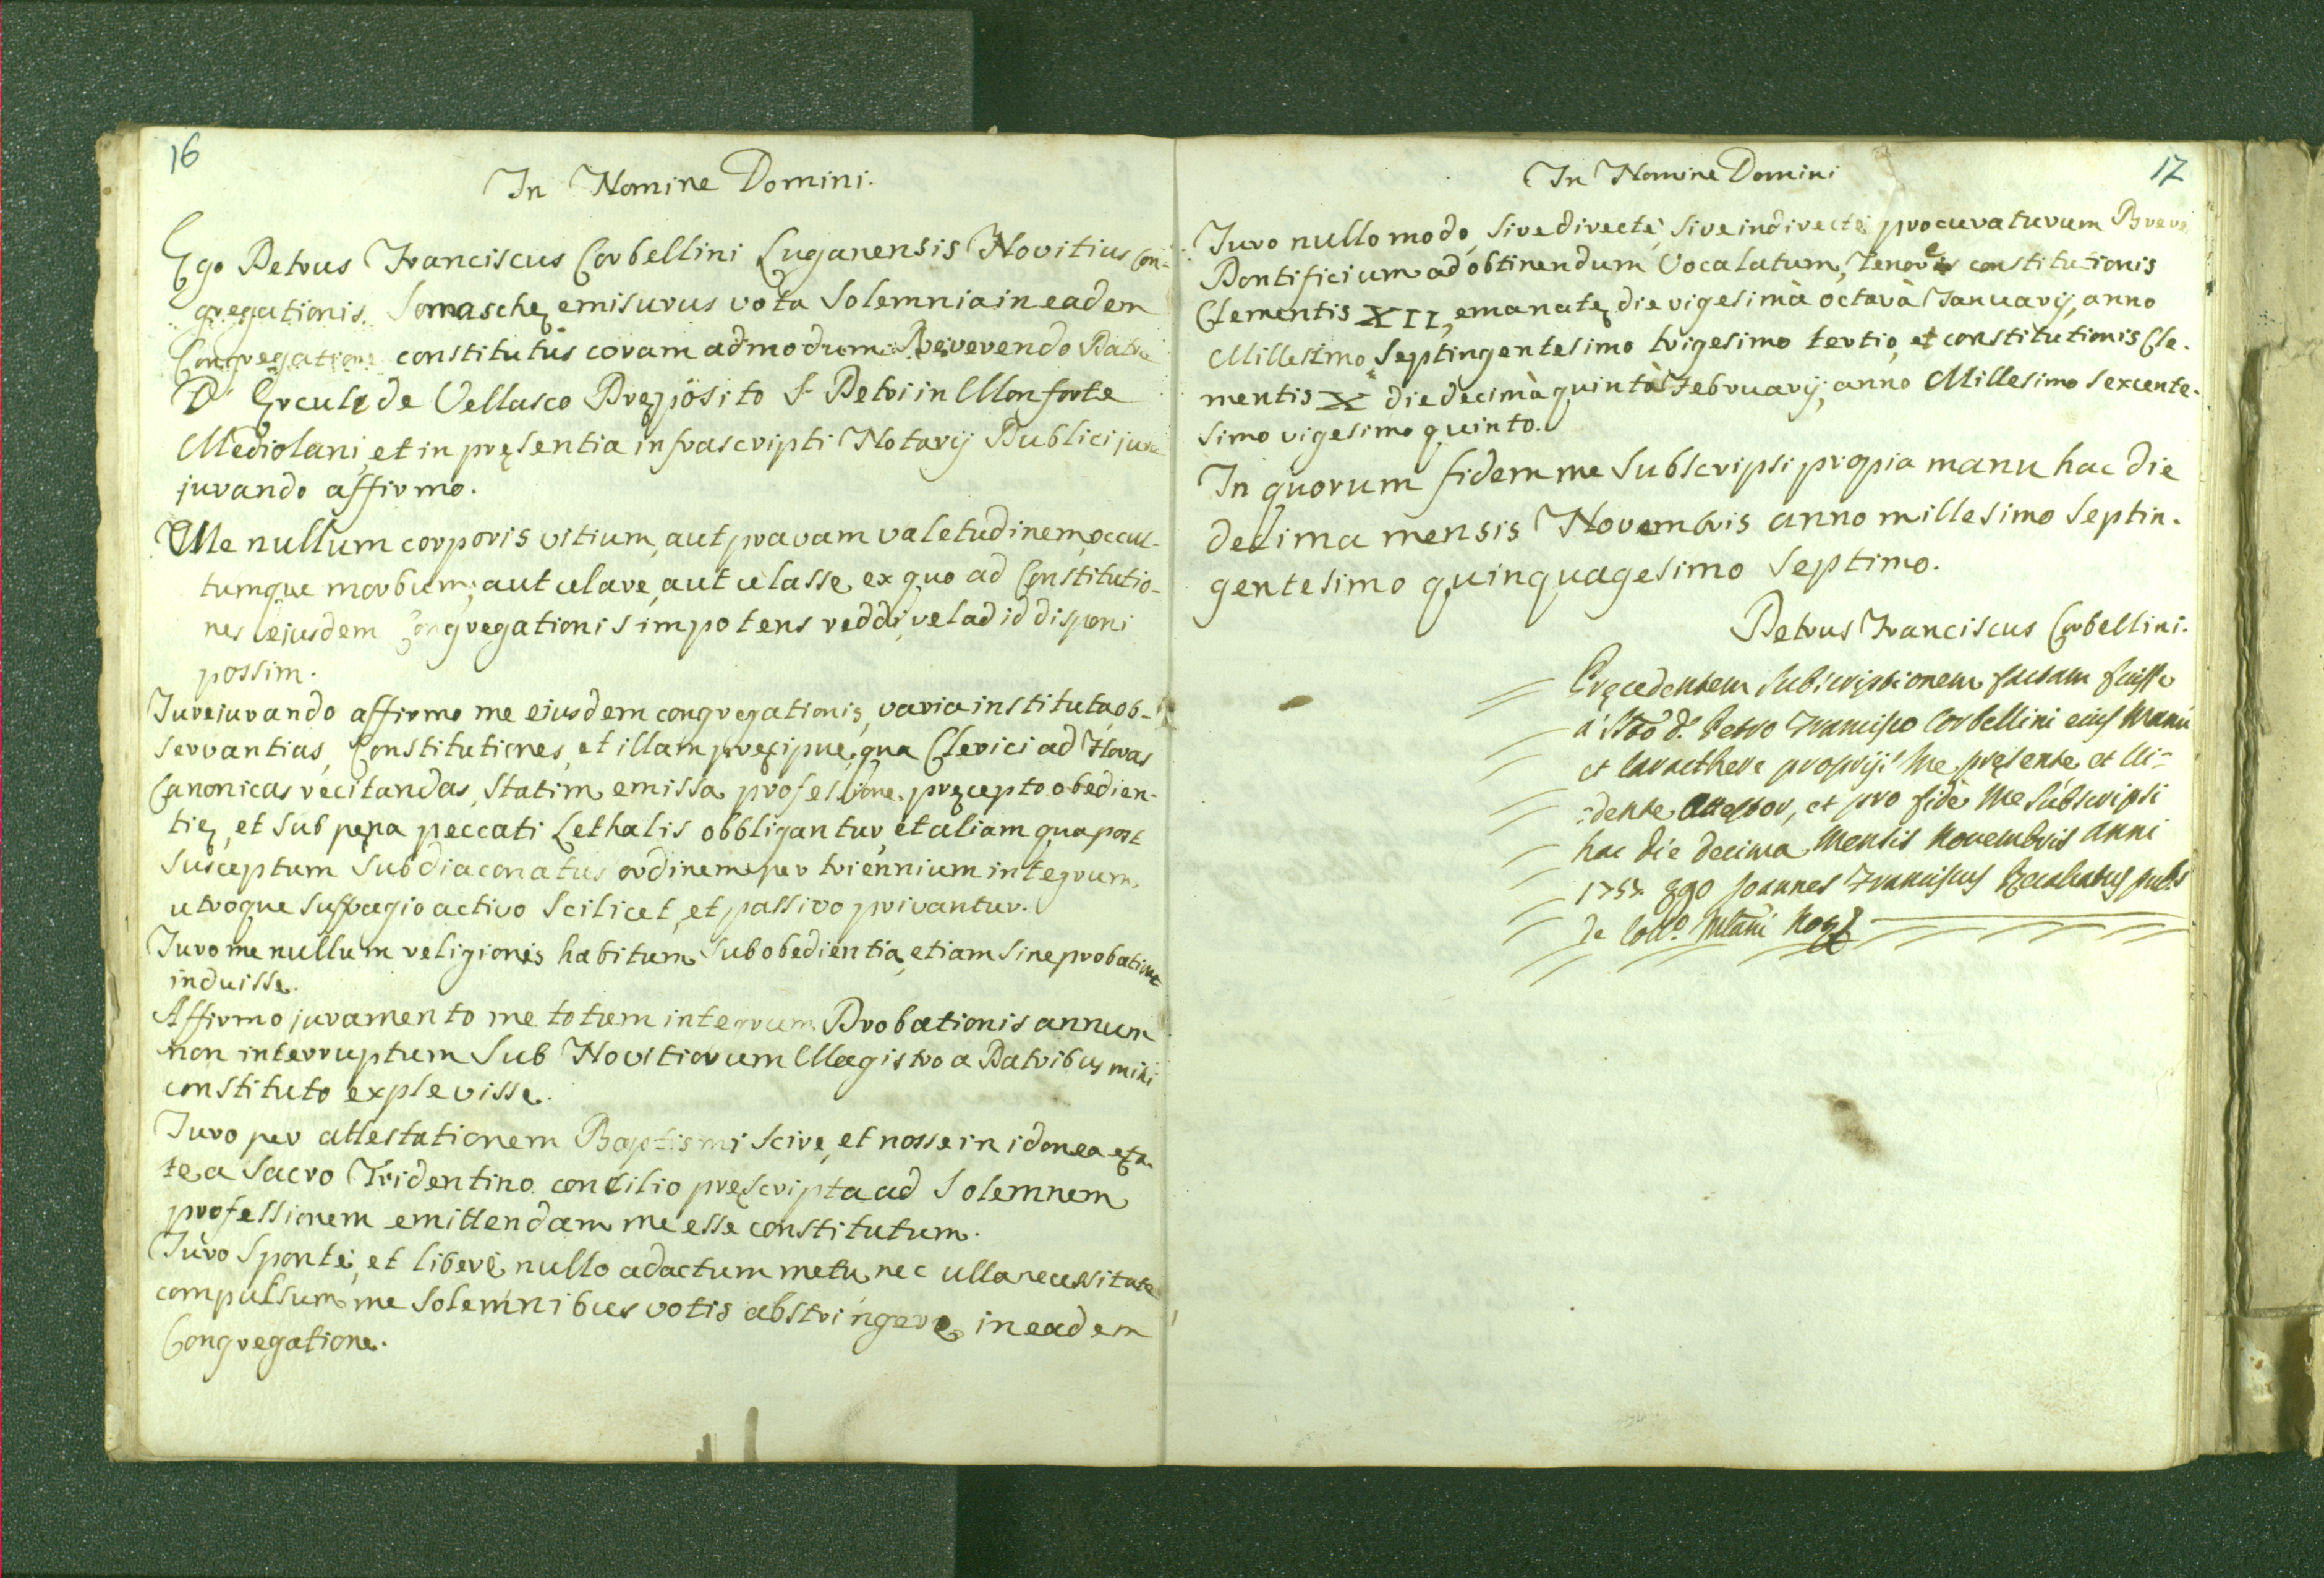 16
In Nomine Domini.
Ego Petrus Franciscus Corbellini Luganensis Novitius Con-
gregationis Somaschę emisurus vota Solemnia in eadem
Congregatione constitutus coram admodum Reverendo Patre
D. Ercule de Vellasco Pręposito S. Petri in Monforte
Mediolani, et in pręsentia infrascripti Notarij Publici jure
jurando affirmo.
Me nullum corporis vitium, aut pravam valetudinem, occul-
tumque morbum, aut celare, aut celasse, ex quo ad Constitutio-
nes ejusdem Congregationis impotens reddi, vel ad id disponi
possim.
Jurejurando affirmo me ejusdem congregationis, varia instituta ob-
servantias, Constitutiones, et illam pręcipue, qua Clerici ad Horas
Canonicas recitandas, statim emissa professione, pręcepto obedien-
tię, et sub pęna peccati Lethalis obbligantur, et aliam qua post
susceptum Subdiaconatus ordinem per triennium integrum
utroque suffragio activo Scilicet, et passivo privantur.
Juro me nullum religionis habitum sub obedientia, etiam sine probatione
induisse.
Affirmo juramento me totum integrum Probationis annum
non interruptum Sub Novitiorum Magistro a Patribus mihi
constituto explevisse.
Juro per attestationem Baptismi scire, et nosse in idonea ęta-
te a Sacro Tridentino concilio pręscripta ad Solemnem
professionem emittendam me esse constitutum.
Juro Sponte, et liberè nullo adactum metu, nec ulla necessitate
compulsum me Solemnibus votis abstringere in eadem
Congregatione.
17
In Nomine Domini
Juro nullo modo, sive directè, sive indirectè procuraturum Breve
Pontificium ad obtinendum Vocalatum, tenore constitutionis
Clementis XII, emanatę die vigesimà octavà Januarij, anno
Millesimo Septingentesimo trigesimo tertio, et constitutionis Cle-
mentis X die decimà quintà Februarij, anno Millesimo sexcente-
simo vigesimo quinto.
In quorum fidem me subscripsi propia manu hac die
decima mensis Novembris anno millesimo Septin-
gentesimo quinquagesimo Septimo.
Petrus Franciscus Corbellini.
Pręcedentem subscriptionem factam fuisse
à Sto. d. Petro Francisco Corbellini eius manu
et caracthere proprijs me pręsente et vi-
dente attestor, et pro fide me subscripsi
hac die decima Mensis Novembris anni
1757. Ego Joannes Franciscus pubs
de Collo. Mlani Nots